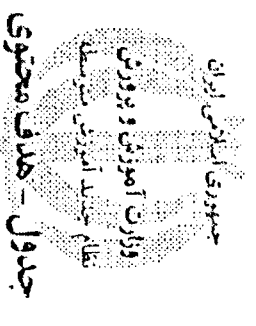 جمهوری اسلامی ایران
وزارت آموزش و پرورش
نظام جدید آموزش متوسطه
جدول - هدف محتوی